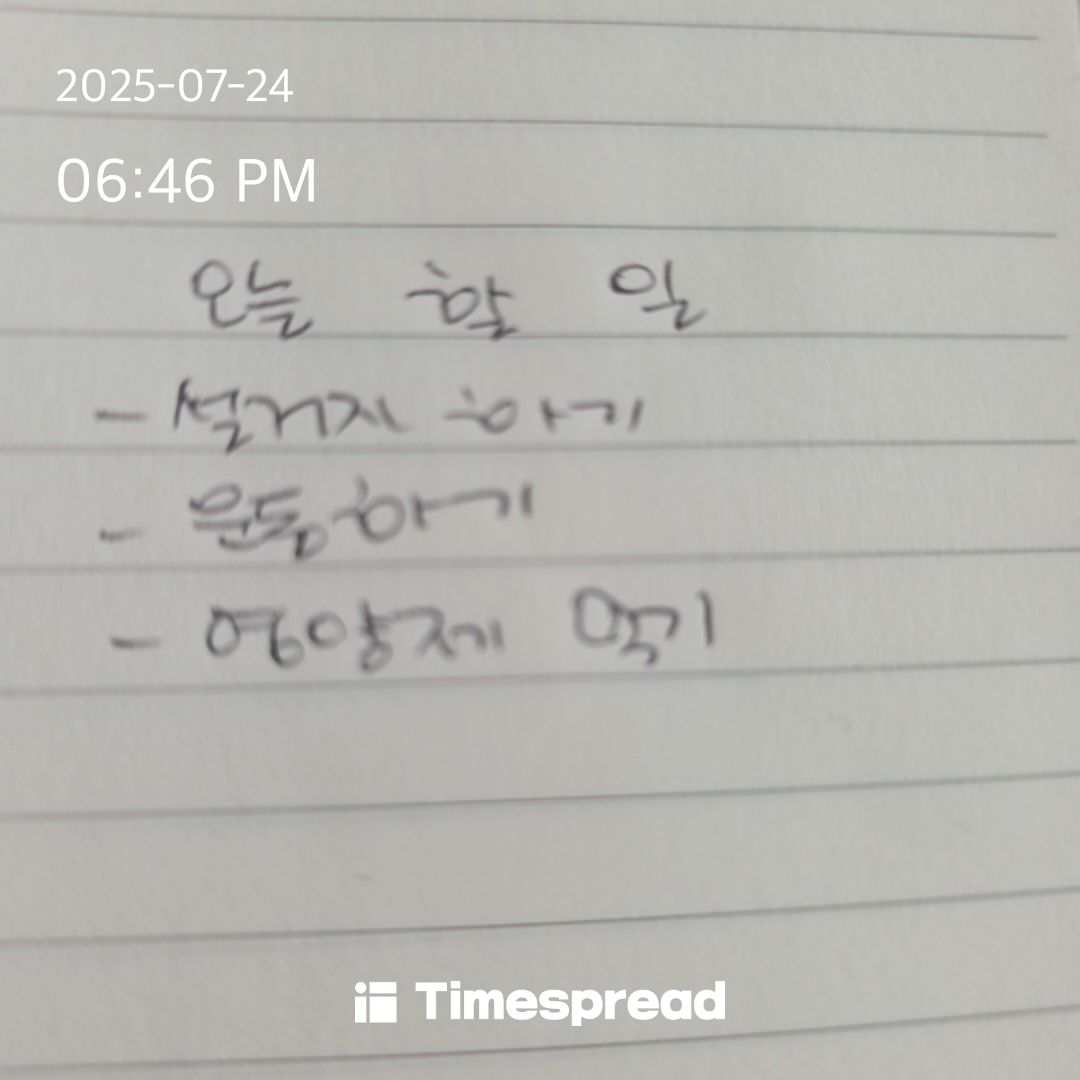 2025-07-24
06:46 PM
오늘 할 일
- 설거지 하기
- 운동하기
- 영양제 먹기
Timespread